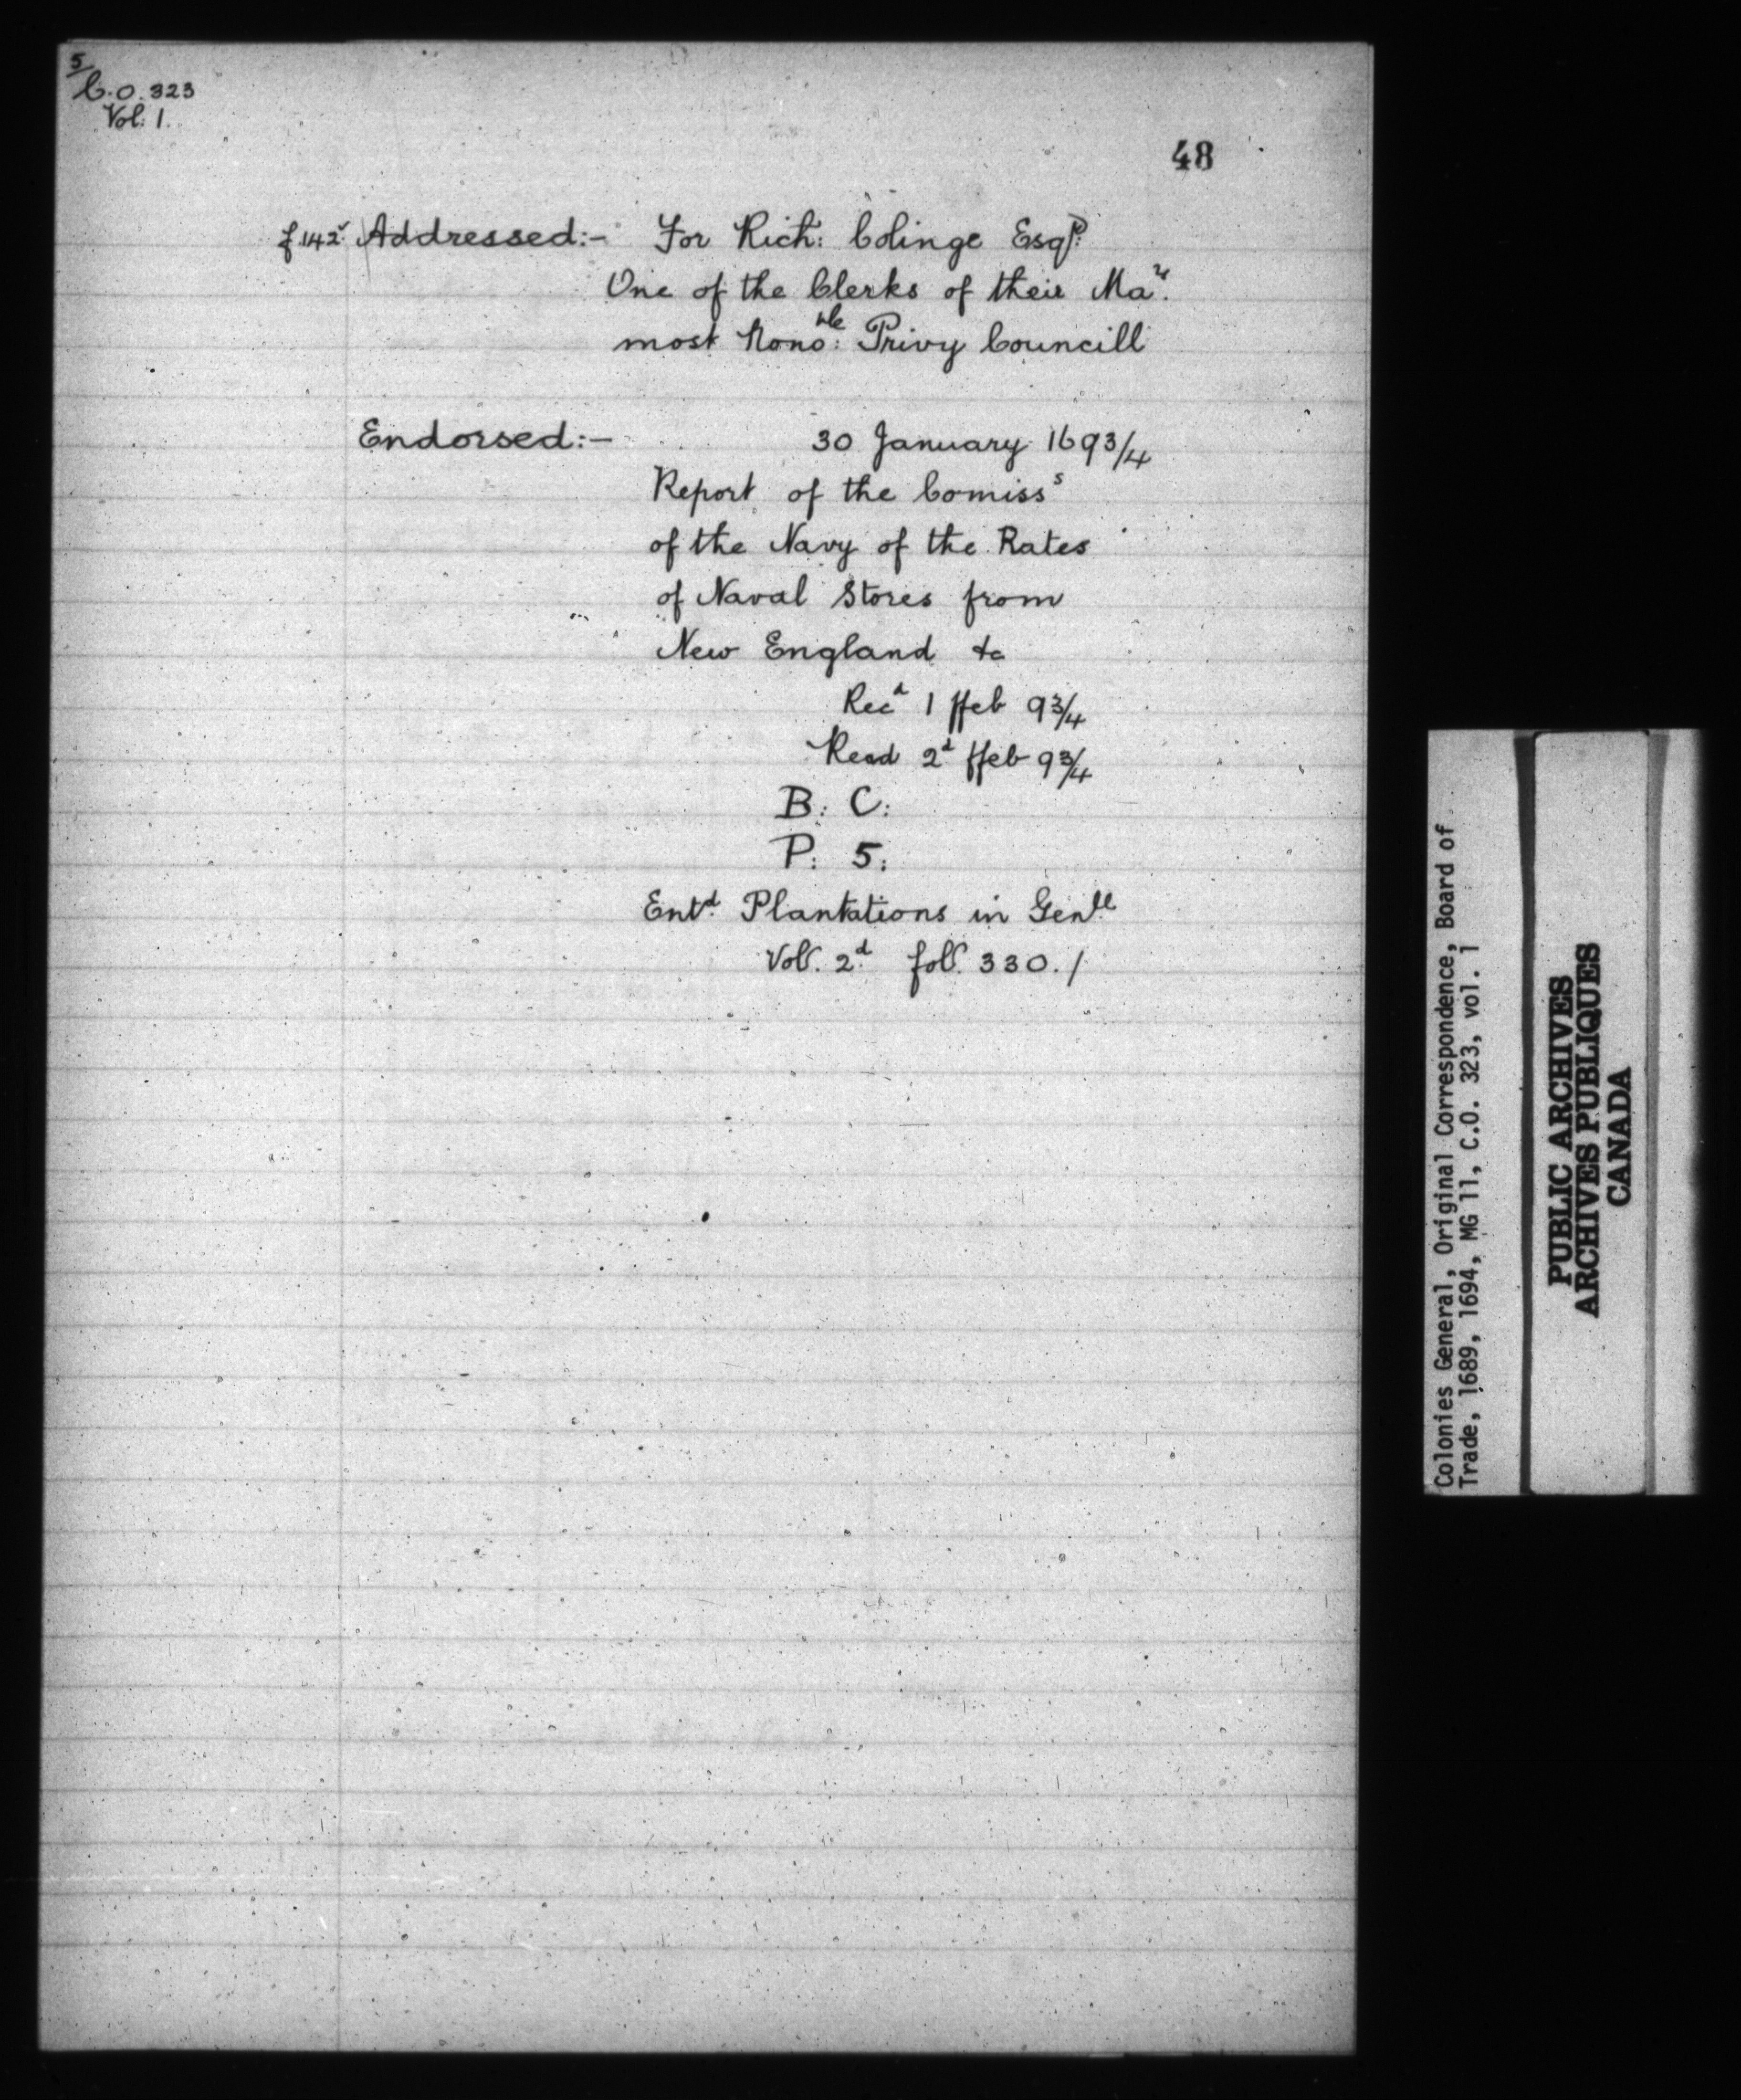 5/
C.O. 323
Vol: 1.
48
f.142v. Addressed:- For Rich: Colinge Esqr:
One of the Clerks of their Mats.
most Honoble: Privy Councill
Endorsed:- 30 January 1693/4
Report of the Comisss
of the Navy of the Rates
of Naval Stores from
New England &c
Recd 1 ffeb 93/4
Read 2d ffeb 93/4
B: C:
P: 5:
Entd. Plantations in Genll.
Vol. 2d. fol. 330. /
Colonies General, Original Correspondence, Board of
Trade, 1689, 1694, MG 11, C.O. 323, vol. 1
PUBLIC ARCHIVES
ARCHIVES PUBLIQUES
CANADA